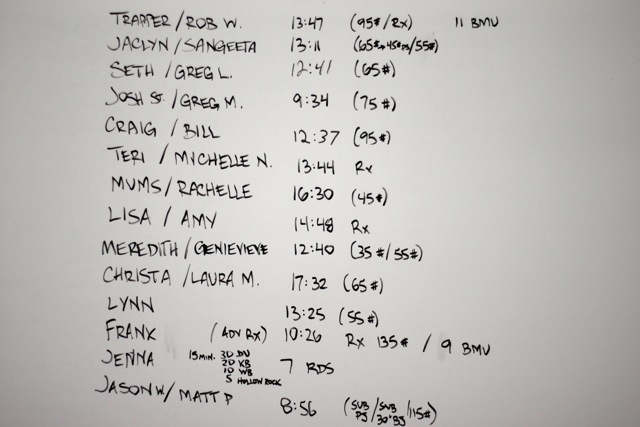 TRAPPER/ROB W. 13:47 (95#/Rx) 11 BMU
JACLYN/SANGEETA 13:11 (65#→45# PS/55#)
SETH/GREG L. 12:41 (65#)
JOSH St./GREG M. 9:34 (75#)
CRAIG/BILL 12:37 (95#)
TERI/MICHELLE N. 13:44 Rx
MUMS/RACHELLE 16:30 (45#)
LISA/AMY 14:48 Rx
MEREDITH/GENIEVIEVE 12:40 (35#/55#)
CHRISTA/LAURA M. 17:32 (65#)
LYNN 13:25 (55#)
FRANK (ADV RX) 10:26 Rx 135# / 9 BMU
JENNA 15 MIN. 30 DU 7 RDS
20 KB
10 WB
5 HOLLOW ROCK
JASON W/MATT P 8:56 (SUB PJ/SUB 30" BJ/115#)